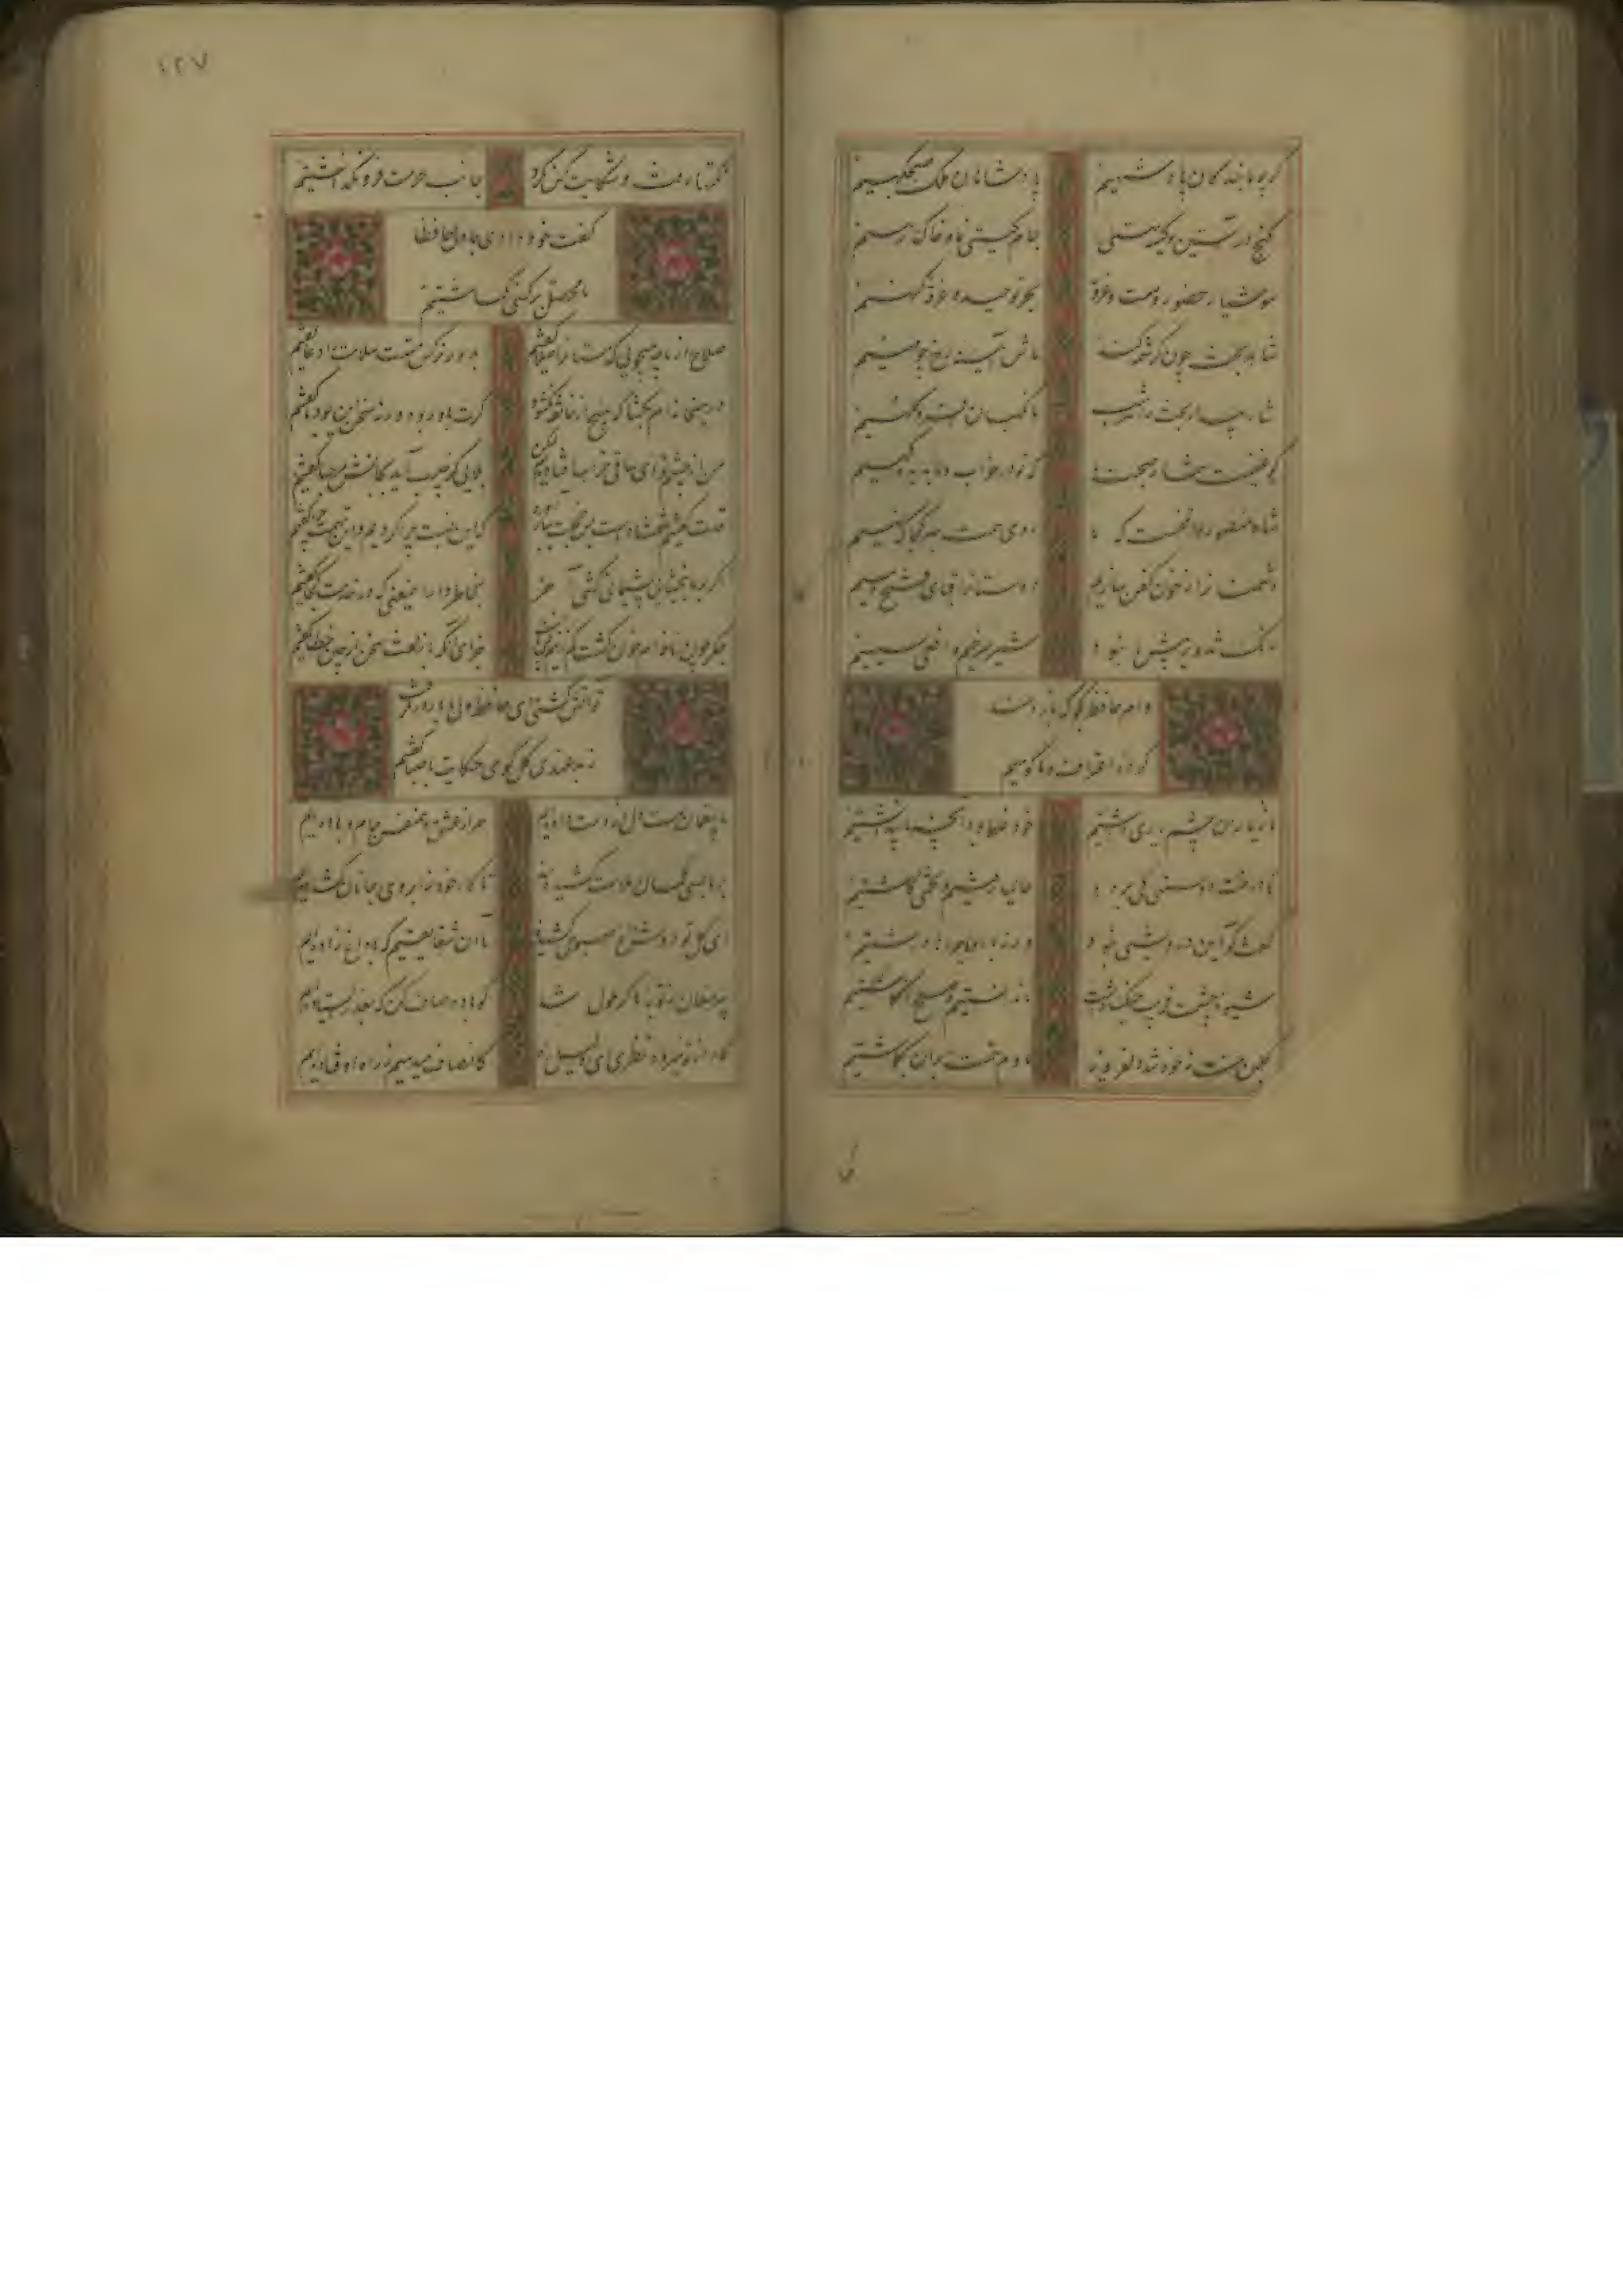 گرچه ما بندگان پادشهیم پادشاهان ملک صبحگهیم
گنج در آستین و کیسه تهی جام گیتی نما و خاک رهیم
هوشیار حضور و مست غرور بحر توحید و غرقه گنهیم
شاهد بخت چون کرشمه کند ماش آیینه رخ چو مهیم
شاه بیدار بخت را همه شب ما نگهبان افسر و کلهیم
گو غنیمت شمار صحبت ما که تو در خواب و ما به دیده گهیم
شاه منصور واقفست که ما روی همت به هر کجا که نهیم
دشمنان را ز خون کفن سازیم دوستان را قبای فتح دهیم
رنگ تزویر پیش ما نبود شیر سرخیم و افعی سیهیم
وام حافظ بگو که باز دهند
کرده اعتراف و ما گوهیم
ما ز یاران چشم یاری داشتیم خود غلط بود آنچه ما پنداشتیم
تا درخت دوستی کی بر دهد حالیا رفتیم و تخمی کاشتیم
گفت و گو آیین درویشی نبود ورنه با تو ماجراها داشتیم
شیوه چشمت فریب جنگ داشت ما ندانستیم و صلح انگاشتیم
گلبن حسنت نه خود شد دلفروز ما دم همت بر آن بگماشتیم
۱۲۷
نکتها رفت و شکایت کس نکرد جانب حرمت فرو نگذاشتیم
گفت خود دادی بما دل حافظا
ما محصل بر کسی نگماشتیم
صلاح از ما چه میجویی که مستان را صلا گفتیم به دور نرگس مستت سلامت را دعا گفتیم
در میخانه ام بگشا که هیچ از خانقه نگشود گرت باور بود ور نه سخن این بود ما گفتیم
من از چشم تو ای ساقی خراب افتاده ام لیکن بلایی کز حبیب آید هزارش مرحبا گفتیم
قدت گفتم که شمشادست بس خجلت ببار آورد که این نسبت چرا کردیم و این تهمت چرا گفتیم
اگر بر من نبخشایی پشیمانی کشی آخر بخاطر دار این معنی که در خدمت کجا گفتیم
جگر چون نافه ام خون گشت کم زینم نمی باید جزای آنکه با زلفت سخن از چین خطا گفتیم
تو آتش گشتی ای حافظ ولی با یار در نگرفت
ز بدعهدی گل گویی حکایت با صبا گفتیم
ما بیغمان مست دل از دست داده ایم همراز عشق و همنفس جام و باده ایم
بر ما بسی کمان ملامت کشیده اند تا کار خود ز ابروی جانان گشاده ایم
ای گل تو دوش داغ صبوحی کشیده ما آن شقایقیم که با داغ زاده ایم
پیر مغان ز توبه ما گر ملول شد گو باده صاف کن که بعذر ایستاده ایم
کار از تو میرود نظری ای دلیل راه کانصاف میدهیم ز راه اوفتاده ایم